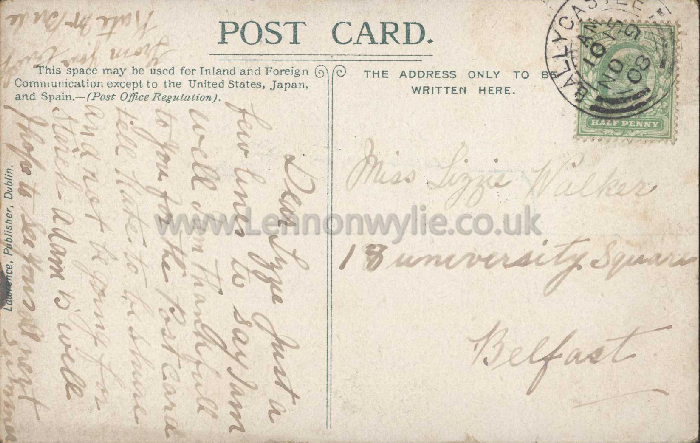 POST CARD.
This space may be used for Inland and Foreign
Communication except to the United States, Japan,
and Spain.—(Post Office Regulation).
THE ADDRESS ONLY TO BE
WRITTEN HERE.
BALLYCASTLE
NO
08
HALF PENNY
Miss Lizzie Walker
18 university Square
Belfast
Dear Lizzie Just a
few lines to say I am
well and thankfull
to you for the Post card
ill hate to be
and not
Adam is well
hope to see you next
from your
Kate Mc
Lawrence, Publisher, Dublin.
www.Lennonwylie.co.uk